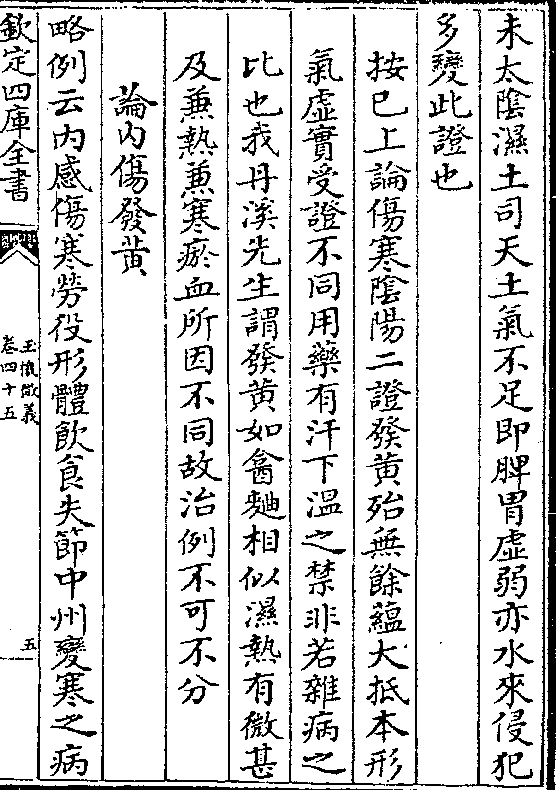 未太陰濕土司天土氣不足即脾胃虛弱亦水來侵犯
多變此證也
按已上論傷寒陰陽二證發黄殆無餘蘊大抵本形
氣虛實受證不同用藥有汗下溫之禁非若雜病之
比也我丹溪先生謂發黄如盦麯相似濕熱有微甚
及兼熱兼寒瘀血所因不同故治例不可不分
論内傷發黄
略例云内感傷寒勞役形體飲食失節中州變寒之病
欽定四庫全書
玉機微義
卷四十五
五